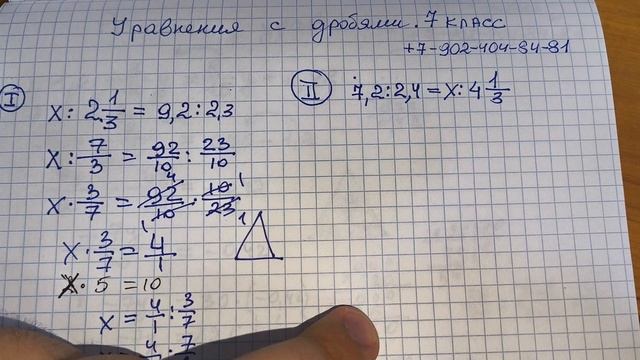 Уравнения с дробями. 7 класс
+7-902-404-84-81
I
x : 2 1/3 = 9,2 : 2,3
x : 7/3 = 92/10 : 23/10
x · 3/7 = 92/10 · 10/23
4 1 1 1
x · 3/7 = 4/1
x · 5 = 10
x = 4/1 : 3/7
II
7,2 : 2,4 = x : 4 1/3